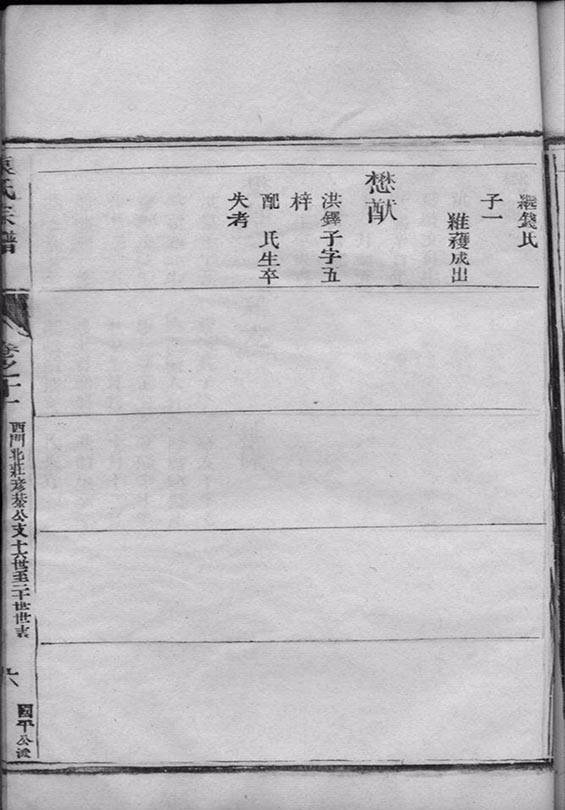 繼錢氏
子一
雒蒦成出
懋猷
洪鐸子字五
梓
配　氏生卒
失考
氏宗譜
卷之十一
西門北莊彥棻公支十六世至二十世世表
國平公派